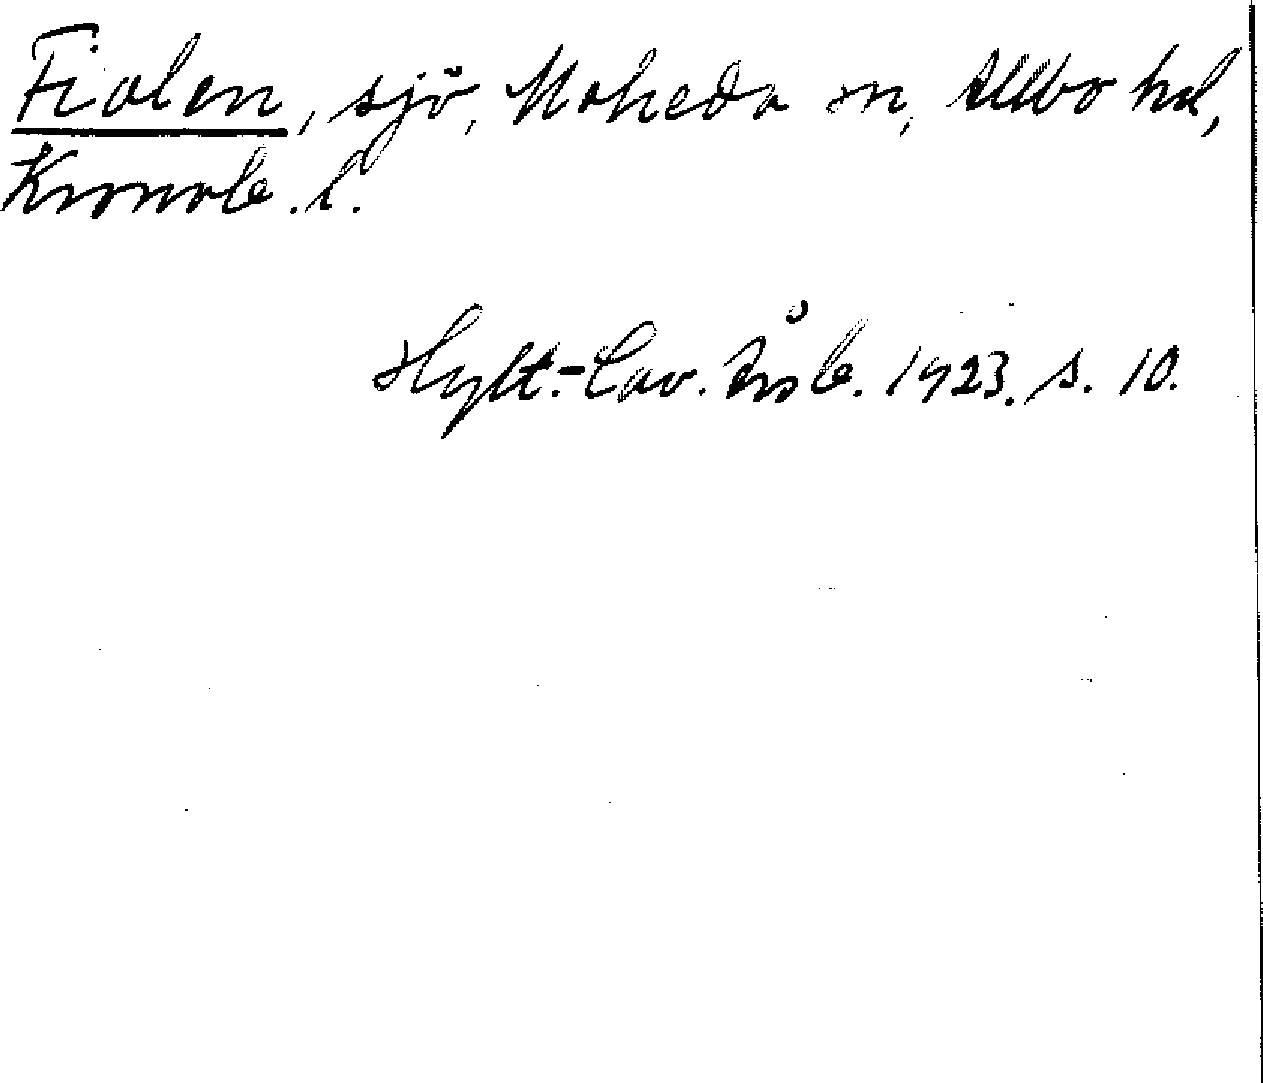 Fiolen, sjö, Moheda sn, Allbo hd,
Kronob. l.
Hylt.-Cav. Årsb. 1923. s. 10.